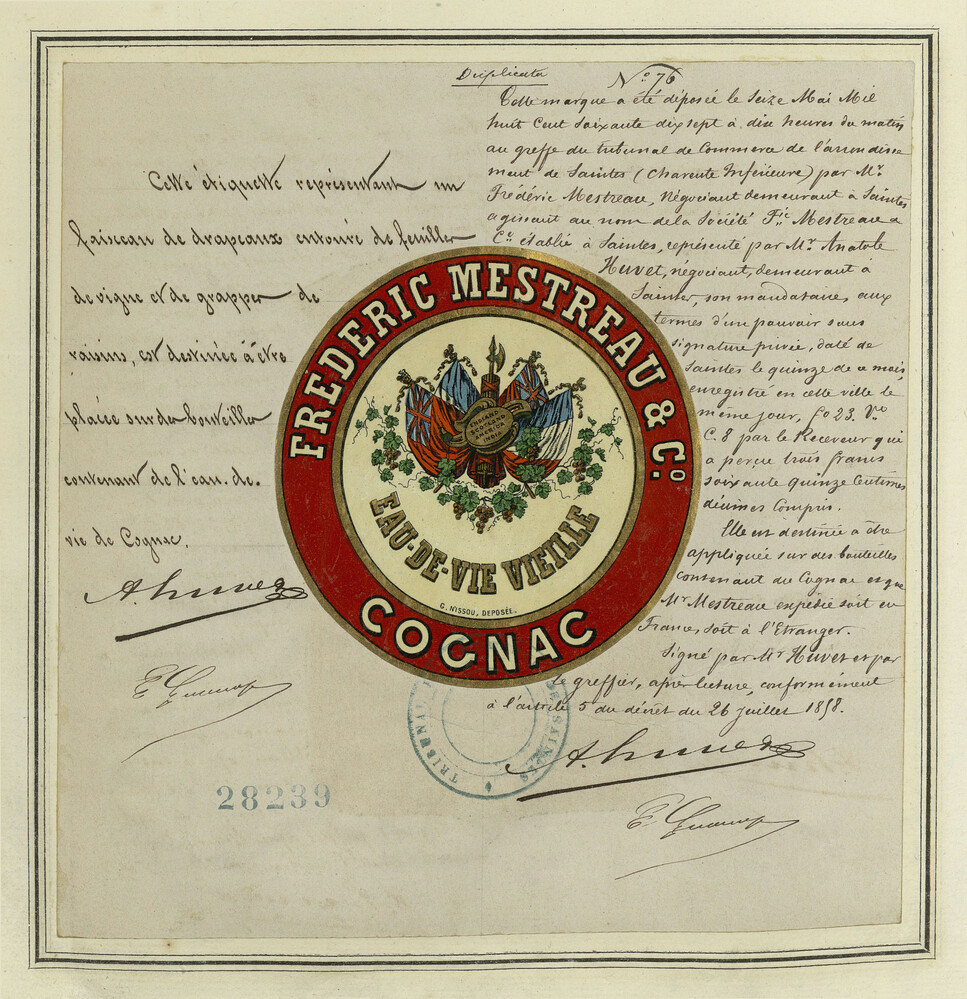 Duplicata
N° 76
Cette marque a été déposée le Seize Mai Mil
huit Cent Soixante dix sept à dix heures du matin
au greffe du tribunal de Commerce de l'arrondisse
ment de Saintes (Charente Inférieure) par Mr
Frédéric Mestreau, Négociant demeurant à Saintes
agissant au nom de la Société Fic Mestreau &
Co établie à Saintes, représenté par Mr Anatole
Huvet, négociant, demeurant à
Saintes, son mandataire, aux
termes d'un pouvoir sous
signature privée, daté de
Saintes le quinze de ce mois,
enregistré en cette ville le
même jour, fo 23. Vo
C. 8 par le Receveur qui
a perçu trois francs
soixante quinze centimes
décimes compris.
Elle est destinée à être
appliquée sur des bouteilles
contenant du Cognac et que
Mr Mestreau expédie soit en
France, soit à l'Etranger.
Signé par Mr Huvet et par
le greffier, après lecture, conformément
à l'article 5 du décret du 26 juillet 1858.
Cette étiquette représentant un
faisceau de drapeaux entouré de feuilles
de vigne et de grappes de
raisins, est destinée à être
placée sur des bouteilles
contenant de l'eau-de-
vie de Cognac.
FREDERIC MESTREAU & Co
ENGLAND
SCOTLAND
AMERICA
INDIA
EAU-DE-VIE VIEILLE
G. NISSOU, DEPOSÉE.
COGNAC
TRIBUNAL
DE SAINTES
28239